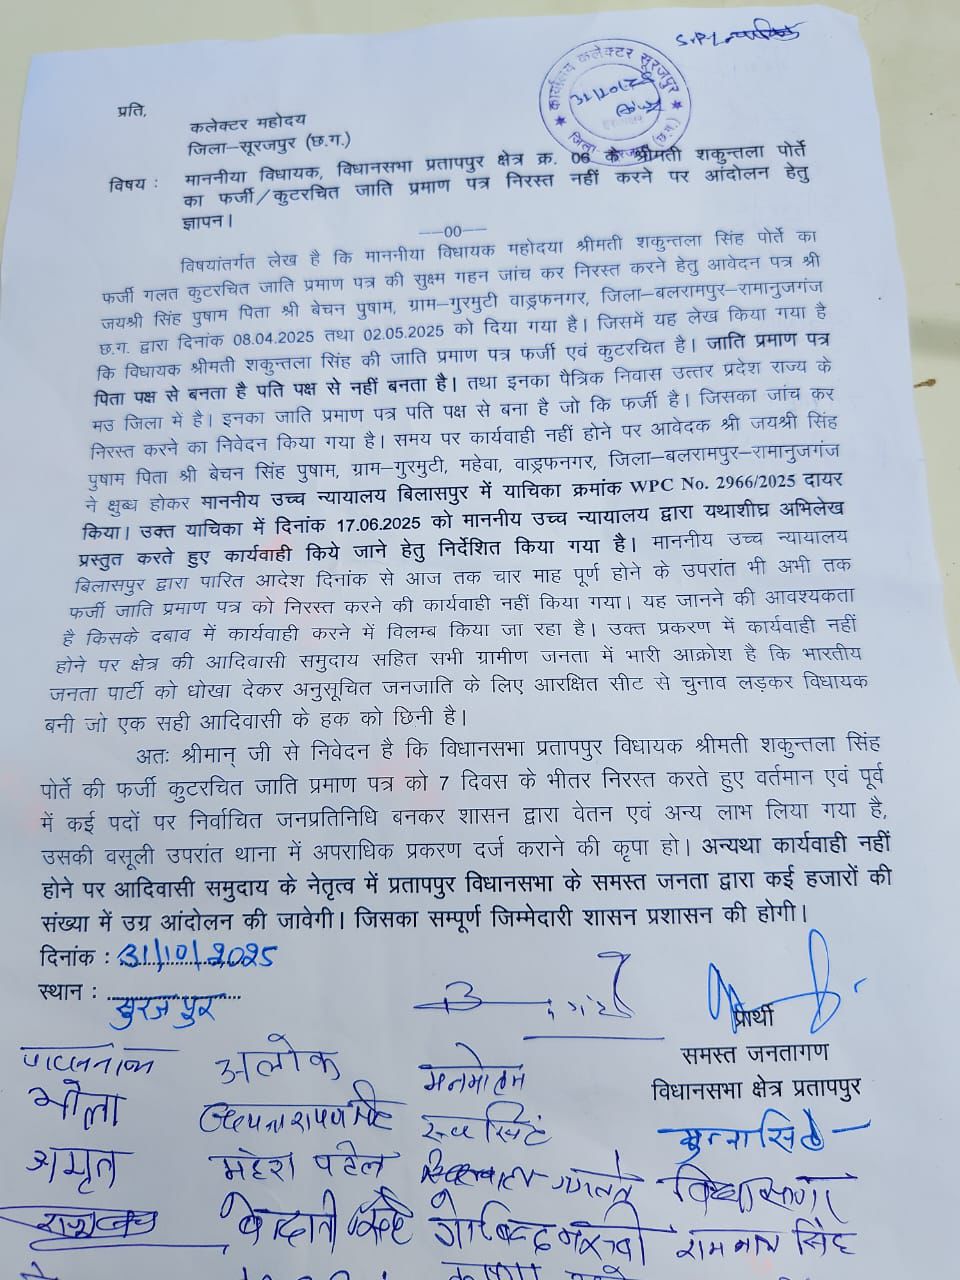 कार्यालय कलेक्टर सूरजपुर
प्रति,
कलेक्टर महोदय
जिला–सूरजपुर (छ.ग.)
विषय : माननीया विधायक, विधानसभा प्रतापपुर क्षेत्र क्र. 06 के श्रीमती शकुन्तला पोर्ते
का फर्जी/कुटरचित जाति प्रमाण पत्र निरस्त नहीं करने पर आंदोलन हेतु
ज्ञापन।
––00––
विषयांतर्गत लेख है कि माननीया विधायक महोदया श्रीमती शकुन्तला सिंह पोर्ते का
फर्जी गलत कुटरचित जाति प्रमाण पत्र की सुक्ष्म गहन जांच कर निरस्त करने हेतु आवेदन पत्र श्री
जयश्री सिंह पुषाम पिता श्री बेचन पुषाम, ग्राम–गुरमुटी वाड्रफनगर, जिला–बलरामपुर–रामानुजगंज
छ.ग. द्वारा दिनांक 08.04.2025 तथा 02.05.2025 को दिया गया है। जिसमें यह लेख किया गया है
कि विधायक श्रीमती शकुन्तला सिंह की जाति प्रमाण पत्र फर्जी एवं कुटरचित है। जाति प्रमाण पत्र
पिता पक्ष से बनता है पति पक्ष से नहीं बनता है। तथा इनका पैत्रिक निवास उत्तर प्रदेश राज्य के
मउ जिला में है। इनका जाति प्रमाण पत्र पति पक्ष से बना है जो कि फर्जी है। जिसका जांच कर
निरस्त करने का निवेदन किया गया है। समय पर कार्यवाही नहीं होने पर आवेदक श्री जयश्री सिंह
पुषाम पिता श्री बेचन सिंह पुषाम, ग्राम–गुरमुटी, महेवा, वाड्रफनगर, जिला–बलरामपुर–रामानुजगंज
ने क्षुब्ध होकर माननीय उच्च न्यायालय बिलासपुर में याचिका क्रमांक WPC No. 2966/2025 दायर
किया। उक्त याचिका में दिनांक 17.06.2025 को माननीय उच्च न्यायालय द्वारा यथाशीघ्र अभिलेख
प्रस्तुत करते हुए कार्यवाही किये जाने हेतु निर्देशित किया गया है। माननीय उच्च न्यायालय
बिलासपुर द्वारा पारित आदेश दिनांक से आज तक चार माह पूर्ण होने के उपरांत भी अभी तक
फर्जी जाति प्रमाण पत्र को निरस्त करने की कार्यवाही नहीं किया गया। यह जानने की आवश्यकता
है किसके दबाव में कार्यवाही करने में विलम्ब किया जा रहा है। उक्त प्रकरण में कार्यवाही नहीं
होने पर क्षेत्र की आदिवासी समुदाय सहित सभी ग्रामीण जनता में भारी आक्रोश है कि भारतीय
जनता पार्टी को धोखा देकर अनुसूचित जनजाति के लिए आरक्षित सीट से चुनाव लड़कर विधायक
बनी जो एक सही आदिवासी के हक को छिनी है।
अतः श्रीमान् जी से निवेदन है कि विधानसभा प्रतापपुर विधायक श्रीमती शकुन्तला सिंह
पोर्ते की फर्जी कुटरचित जाति प्रमाण पत्र को 7 दिवस के भीतर निरस्त करते हुए वर्तमान एवं पूर्व
में कई पदों पर निर्वाचित जनप्रतिनिधि बनकर शासन द्वारा वेतन एवं अन्य लाभ लिया गया है,
उसकी वसूली उपरांत थाना में अपराधिक प्रकरण दर्ज कराने की कृपा हो। अन्यथा कार्यवाही नहीं
होने पर आदिवासी समुदाय के नेतृत्व में प्रतापपुर विधानसभा के समस्त जनता द्वारा कई हजारों की
संख्या में उग्र आंदोलन की जावेगी। जिसका सम्पूर्ण जिम्मेदारी शासन प्रशासन की होगी।
दिनांक : 31/10/2025
स्थान : सुरजपुर
प्रार्थी
समस्त जनतागण
विधानसभा क्षेत्र प्रतापपुर
अलोक मनमोहन
भोला
मुन्ना सिंह
अमृत महेश पटेल
गोबिन्द रामनाथ सिंह